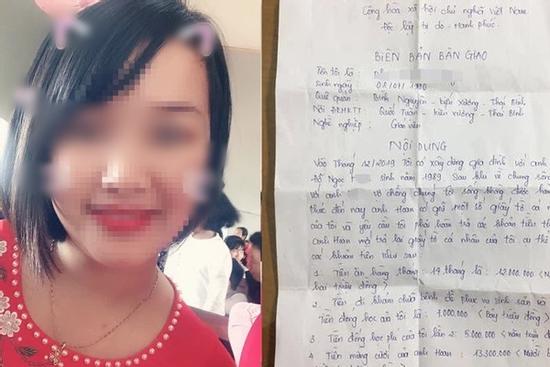 Cộng hòa xã hội chủ nghĩa Việt Nam
Độc lập tự do - Hạnh phúc.
BIÊN BẢN BÀN GIAO
Tên tôi là :
Sinh ngày :
Quê quán : Bình Nguyên - kiến xương - Thái Bình
Nơi ĐKHKTT : Quốc Tuấn - kiến xương - Thái Bình
Nghề nghiệp : Giáo viên
NỘI DUNG
Vào Tháng 12/2019 Tôi có xây dựng gia đình với anh
Đỗ Ngọc sinh năm 1989. Sau khi về chung sống
với anh vợ chồng chúng tôi sống
đến nay anh Hoan có giữ một số giấy tờ cá
của tôi và yêu cầu tôi phải hoàn trả các khoản tiền
anh Hoan mới trả lại giấy tờ cá nhân của tôi cụ thể
các khoản tiền như sau
1. Tiền ăn hàng tháng : 14 tháng là : 12.000.000 (
hai triệu đồng )
2. Tiền đi khám chữa bệnh để phục vụ sinh sản và
Tiền đóng học của tôi là : 7.000.000 ( Bảy triệu đồng )
3. Tiền đóng học phụ của tôi lần 2: 5.000.000 ( năm triệu
4 Tiền mừng cưới của anh Hoan : 13.300.000 ( Mười